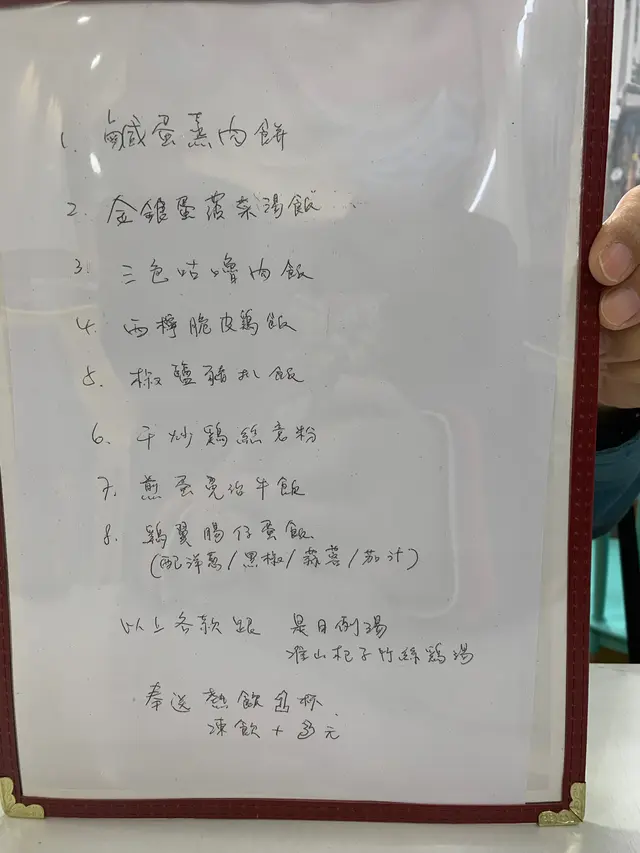 1. 鹹蛋蒸肉餅
2. 金銀蛋菠菜湯飯
3. 三色咕嚕肉飯
4. 西檸脆皮鷄飯
5. 椒鹽豬扒飯
6. 干炒鷄絲意粉
7. 煎蛋免治牛飯
8. 鷄翼腸仔蛋飯
(配洋葱/黑椒/蒜蓉/茄汁)
以上各款跟 是日例湯
淮山杞子竹絲鷄湯
奉送熱飲壹杯
凍飲+元